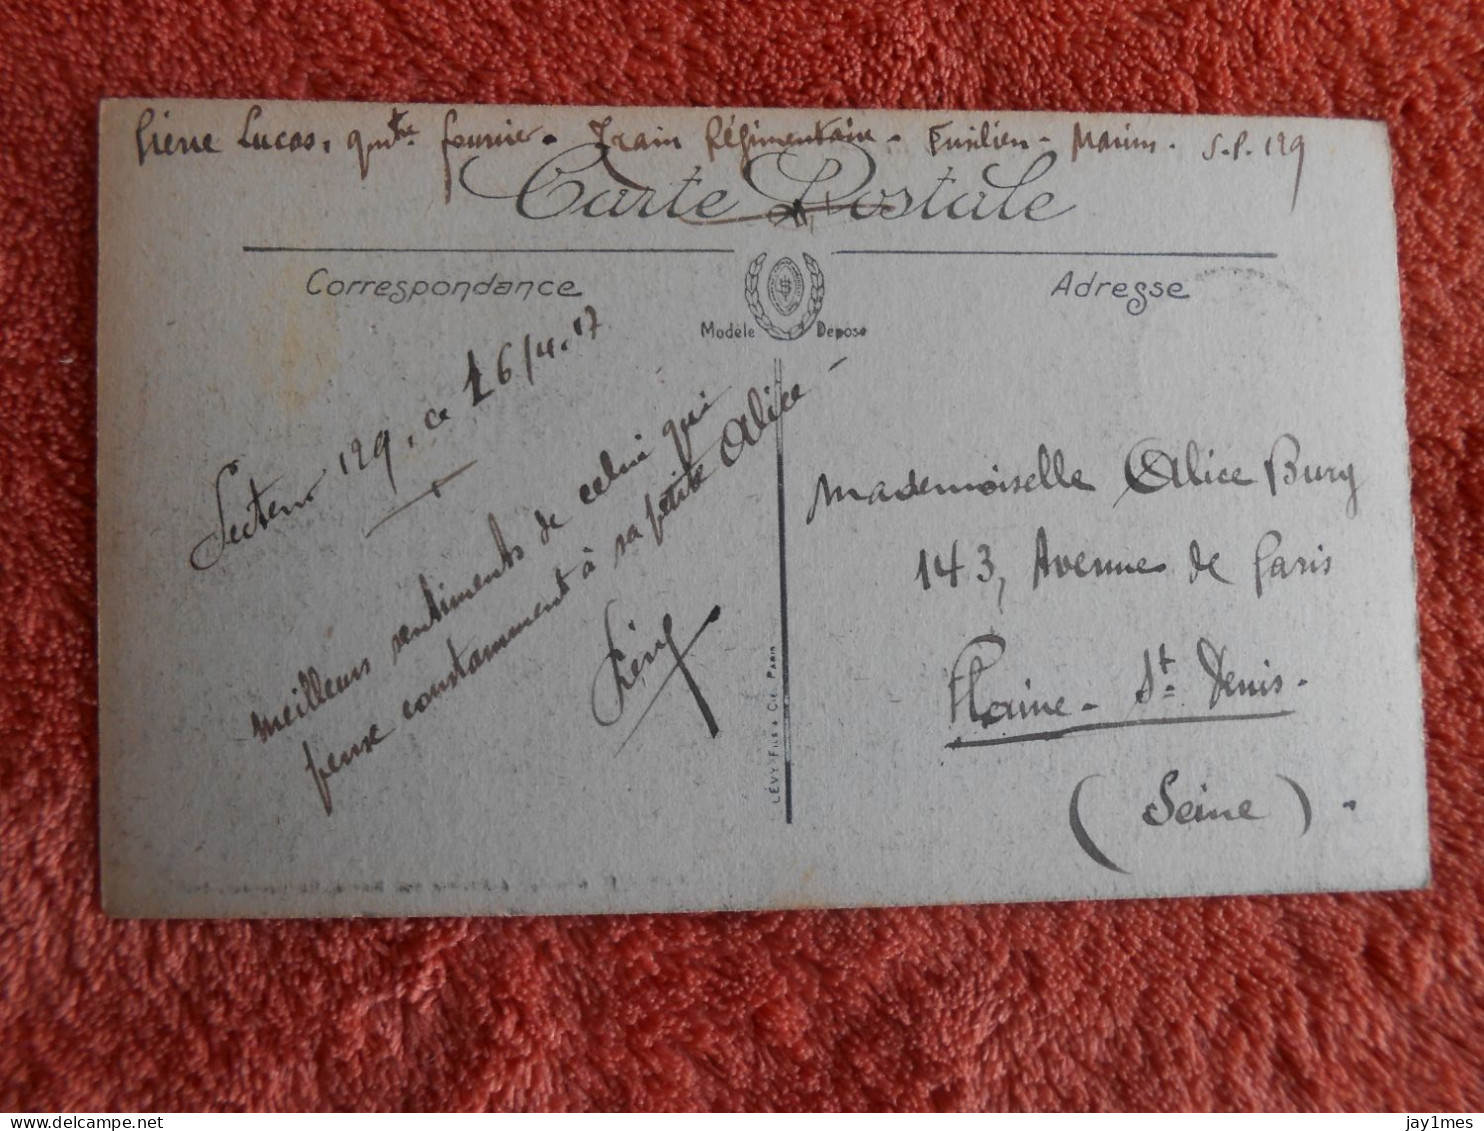 Pierre Lucas, qm^tre fourrier - Train Régimentaire - Fusiliers - Marins. S.P. 129
Carte Postale
Correspondance
Adresse
Modèle Déposé
Secteur 129, ce 16/4.17
meilleurs sentiments de celui qui
pense constamment à sa petite Alice -
Pierre
LÉVY FILS & CIE, PARIS
Mademoiselle Alice Bury
143, Avenue de Paris
Plaine - St Denis.
(Seine).
jay1mes